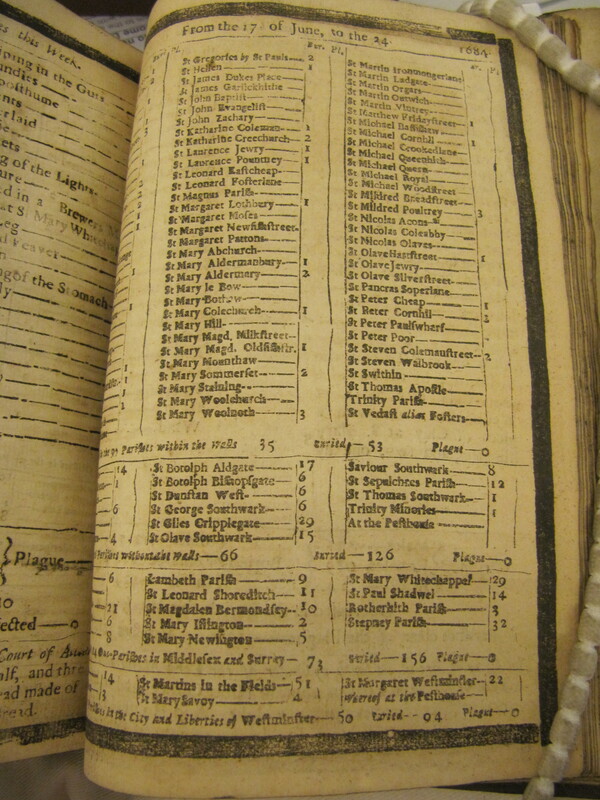 es this Week.
From the 17 of June, to the 24 1684
Bur. Pl.
St Gregories by St Pauls 2
St Hellen 1
St James Dukes Place
St James Garlickhithe
St John Baptist
St John Evangelist
St John Zachary
St Katharine Coleman 1
St Katharine Creechurch 2
St Laurence Jewry 1
St Laurence Pountney 1
St Leonard Eastcheap
St Leonard Fosterlane
St Magnus Parish
St Margaret Lothbery 1
St Margaret Moses
St Margaret Newfishstreet
St Margaret Pattons
St Mary Abchurch
St Mary Aldermanbury 1
St Mary Aldermary 2
St Mary le Bow
St Mary Bothaw
St Mary Colechurch 1
St Mary Hill
St Mary Magd. Milkstreet
St Mary Magd. Oldfishstr. 1
St Mary Mounthaw
St Mary Sommerset 2
St Mary Staining
St Mary Woolchurch
St Mary Woolnoth 3
St Martin Ironmongerlane
St Martin Ludgate
St Martin Orgars
St Martin Outwich
St Martin Vintrey
St Matthew Fridaystreet 1
St Michael Bassishaw
St Michael Cornhil 1
St Michael Crookedlane
St Michael Queenhith
St Michael Quern
St Michael Royal
St Michael Woodstreet
St Mildred Breadstreet
St Mildred Poultrey 3
St Nicolas Acons
St Nicolas Coleabby
St Nicolas Olaves
St Olave Hartstreet 1
St Olave Jewry
St Olave Silverstreet
St Pancras Soperlane
St Peter Cheap 1
St Peter Cornhil 2
St Peter Paulswharf
St Peter Poor
St Steven Colemanstreet 2
St Steven Walbrook
St Swithin
St Thomas Apostle
Trinity Parish
St Vedast alias Fosters
the 97 Parishes within the Walls 35 Buried 53 Plague 0
14 St Botolph Aldgate 17
St Botolph Bishopsgate 6
St Dunstan West 6
6 St George Southwark 6
St Giles Cripplegate 29
4 St Olave Southwark 15
Saviour Southwark 8
St Sepulchres Parish 12
St Thomas Southwark 1
Trinity Minories 1
At the Pesthouse
Parishes without the Walls 66 Buried 126 Plague 0
6 Lambeth Parish 9
St Leonard Shoreditch 11
21 St Magdalen Bermondsey 10
6 St Mary Islington 2
8 St Mary Newington 5
St Mary Whitechappel 29
St Paul Shadwel 14
Rotherhith Parish 3
Stepney Parish 32
Out-Parishes in Middlesex and Surrey 73 Buried 156 Plague 0
14 St Martins in the Fields 51
3 St Mary Savoy 4
St Margaret Westminster 22
Whereof at the Pesthouse
in the City and Liberties of Westminster 50 Buried 94 Plague 0
in the Guts
of the Lights
in a Brewers
of the Stomach
Plague
Court of
half, and three
made of